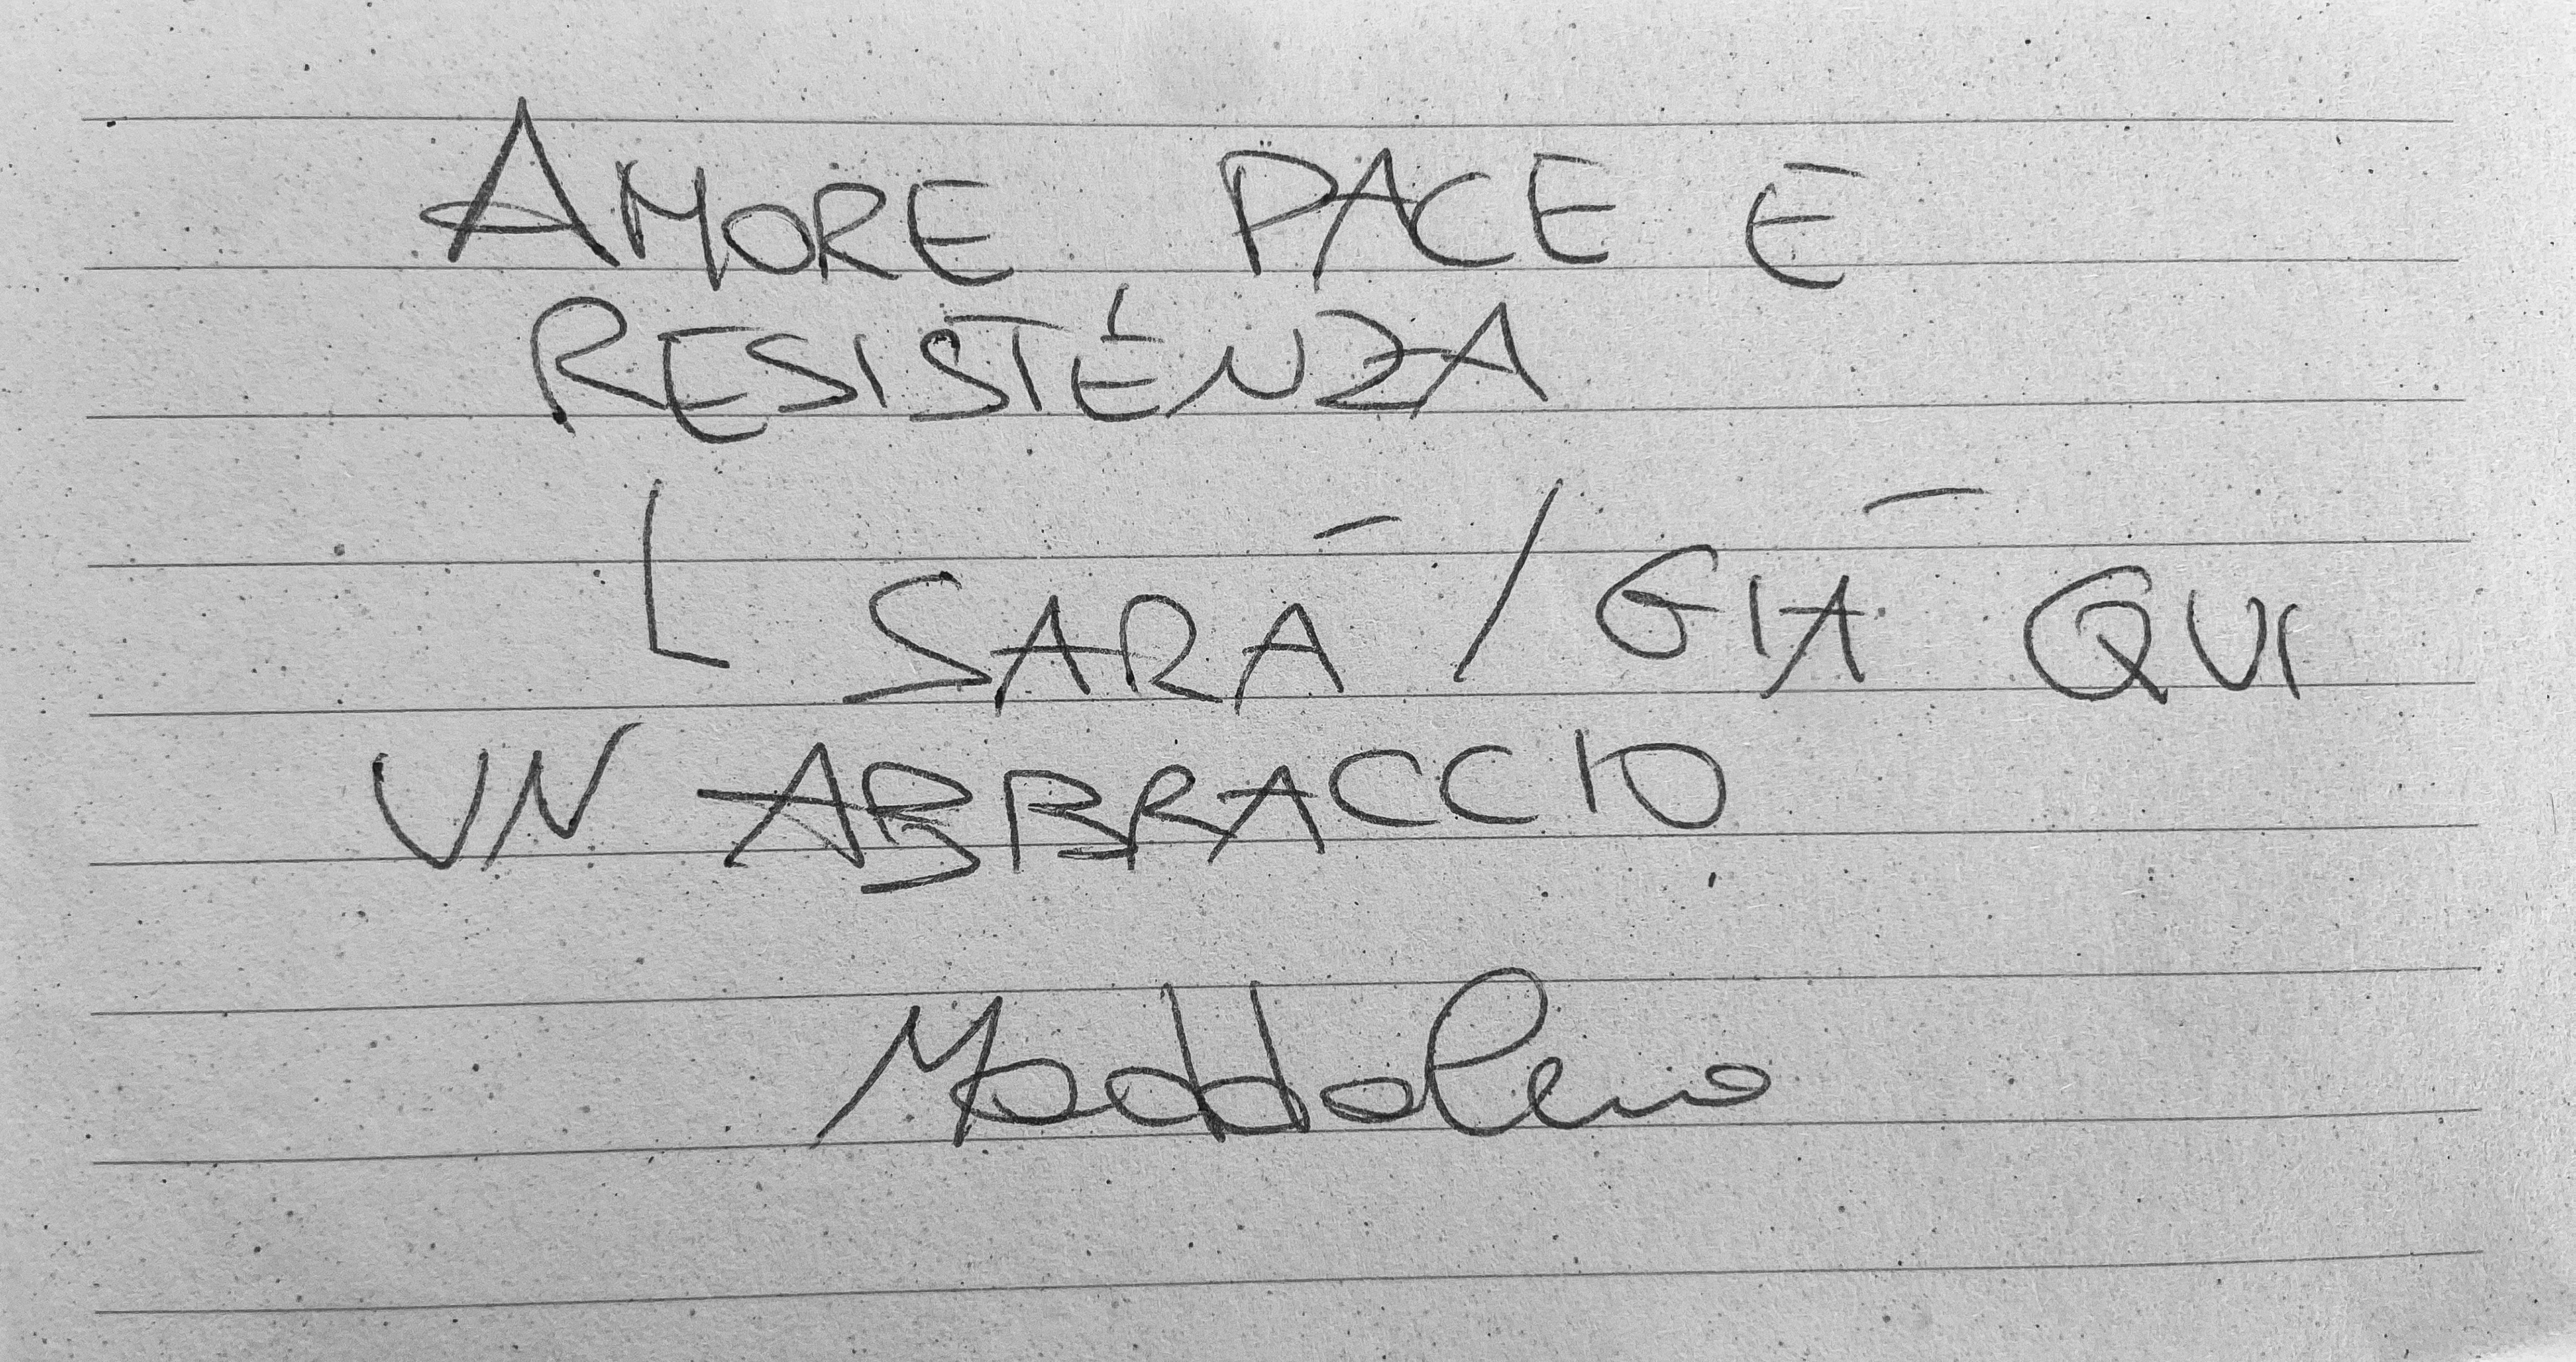 AMORE PACE E
RESISTENZA
L SARÀ / GIÀ QUI
UN ABBRACCIO
Maddalena